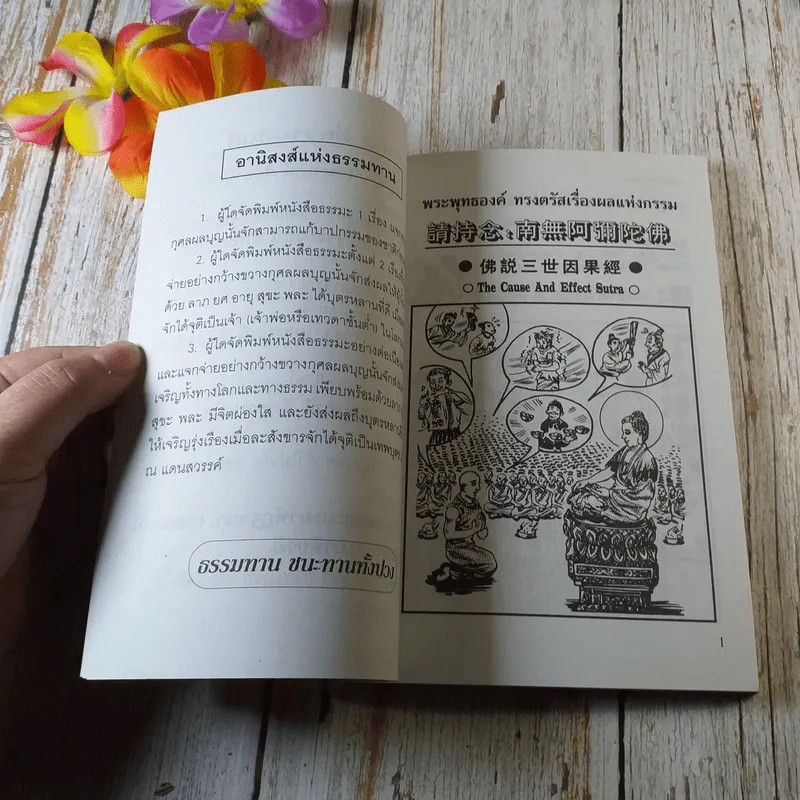 อานิสงส์แห่งธรรมทาน
1. ผู้ใดจัดพิมพ์หนังสือธรรมะ 1 เรื่อง
กุศลผลบุญนั้นจักสามารถแก้บาปกรรมของชาติ
2. ผู้ใดจัดพิมพ์หนังสือธรรมะตั้งแต่ 2
จ่ายอย่างกว้างขวางกุศลผลบุญนั้นจักส่งผลให้
ด้วย ลาภ ยศ อายุ สุขะ พละ ได้บุตรหลานที่ดี
จักได้จุติเป็นเจ้า (เจ้าพ่อหรือเทวดาชั้นต่ำ)
3. ผู้ใดจัดพิมพ์หนังสือธรรมะอย่างต่อเนื่อง
และแจกจ่ายอย่างกว้างขวางกุศลผลบุญนั้นจัก
เจริญทั้งทางโลกและทางธรรม เพียบพร้อมด้วย
สุขะ พละ มีจิตผ่องใส และยังส่งผลถึงบุตรหลาน
ให้เจริญรุ่งเรืองเมื่อละสังขารจักได้จุติเป็นเทพบุตร
ณ แดนสวรรค์
ธรรมทาน ชนะทานทั้งปวง
พระพุทธองค์ ทรงตรัสเรื่องผลแห่งกรรม
請持念：南無阿彌陀佛
● 佛説三世因果經 ●
○ The Cause And Effect Sutra ○
1